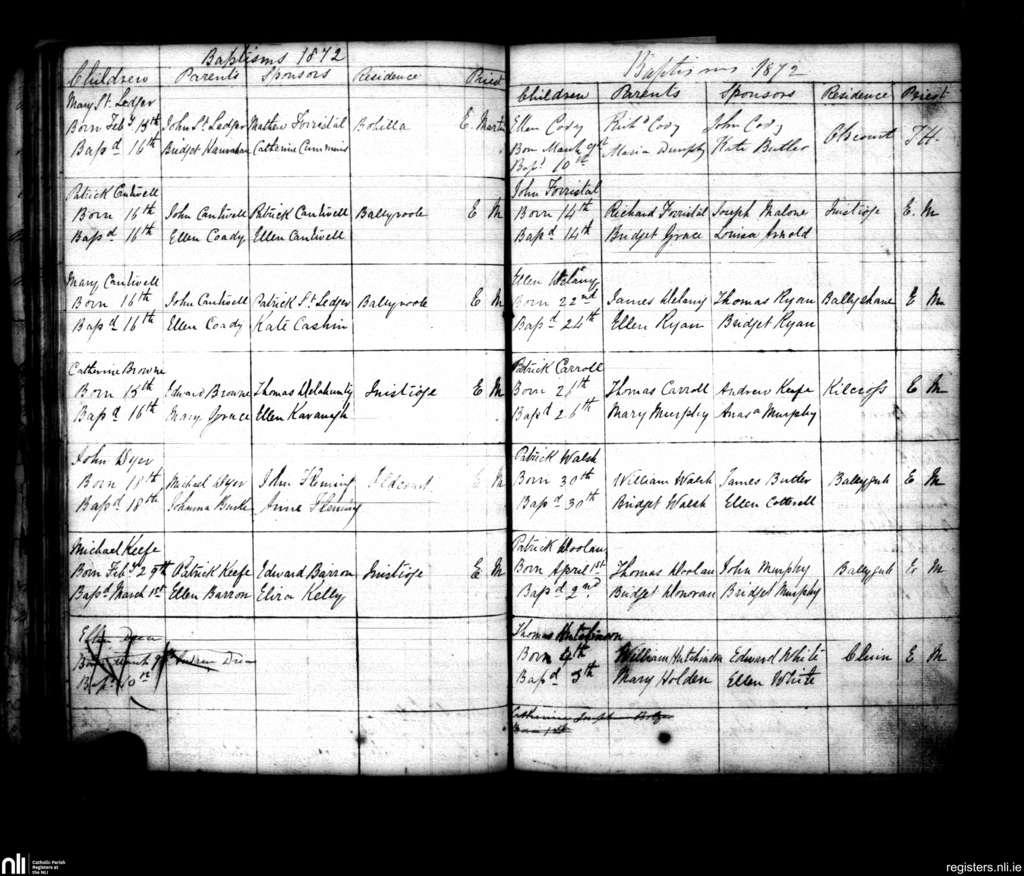 Baptisms 1872
Children Parents Sponsors Residence Priest
Mary St. Ledger
Born Feby 15th John St. Ledger Mathew Forristal Bohilla E. Martin
Bapd 16th Bridget Hanrahan Catherine Cummins
Patrick Cantwell
Born 16th John Cantwell Patrick Cantwell Ballyvoole E M
Bapd 16th Ellen Coady Ellen Cantwell
Mary Cantwell
Born 16th John Cantwell Patrick St. Ledger Ballyvoole E M
Bapd 16th Ellen Coady Kate Cashin
Catherine Browne
Born 15th Edward Browne Thomas Delahunty Inistioge E M
Bapd 16th Mary Grace Ellen Kavanagh
John Dyer
Born 18th Michael Dyer John Fleming Oldcourt E M
Bapd 18th Johanna Burke Anne Fleming
Michael Keefe
Born Feby 29th Patrick Keefe Edward Barron Inistioge E M
Bapd March 1st Ellen Barron Eliza Kelly
Born March 9th
Bapd 10th
Baptisms 1872
Children Parents Sponsors Residence Priest
Ellen Cody Richd Cody John Cody T H.
Born March 9th Maria Dunphy Kate Butler
Bapd 10th
John Forristal
Born 14th Richard Forristal Joseph Malone Inistioge E. M
Bapd 14th Bridget Grace Louisa Arnold
Ellen Delany
Born 22nd James Delany Thomas Ryan Ballyshane E M
Bapd 24th Ellen Ryan Bridget Ryan
Patrick Carroll
Born 26th Thomas Carroll Andrew Keefe Kilcross E M
Bapd 26th Mary Murphy Anasa Murphy
Patrick Walsh
Born 30th William Walsh James Butler Ballygub E M
Bapd 30th Bridget Walsh Ellen Cotterell
Patrick Doolan
Born April 1st Thomas Doolan John Murphy Ballygub E M
Bapd 2nd Bridget Donovan Bridget Murphy
Thomas Hutchinson
Born 4th William Hutchinson Edward White Cluin E M
Bapd 5th Mary Holden Ellen White
Catherine Joseph
nli Catholic Parish
Registers at
the NLI
registers.nli.ie